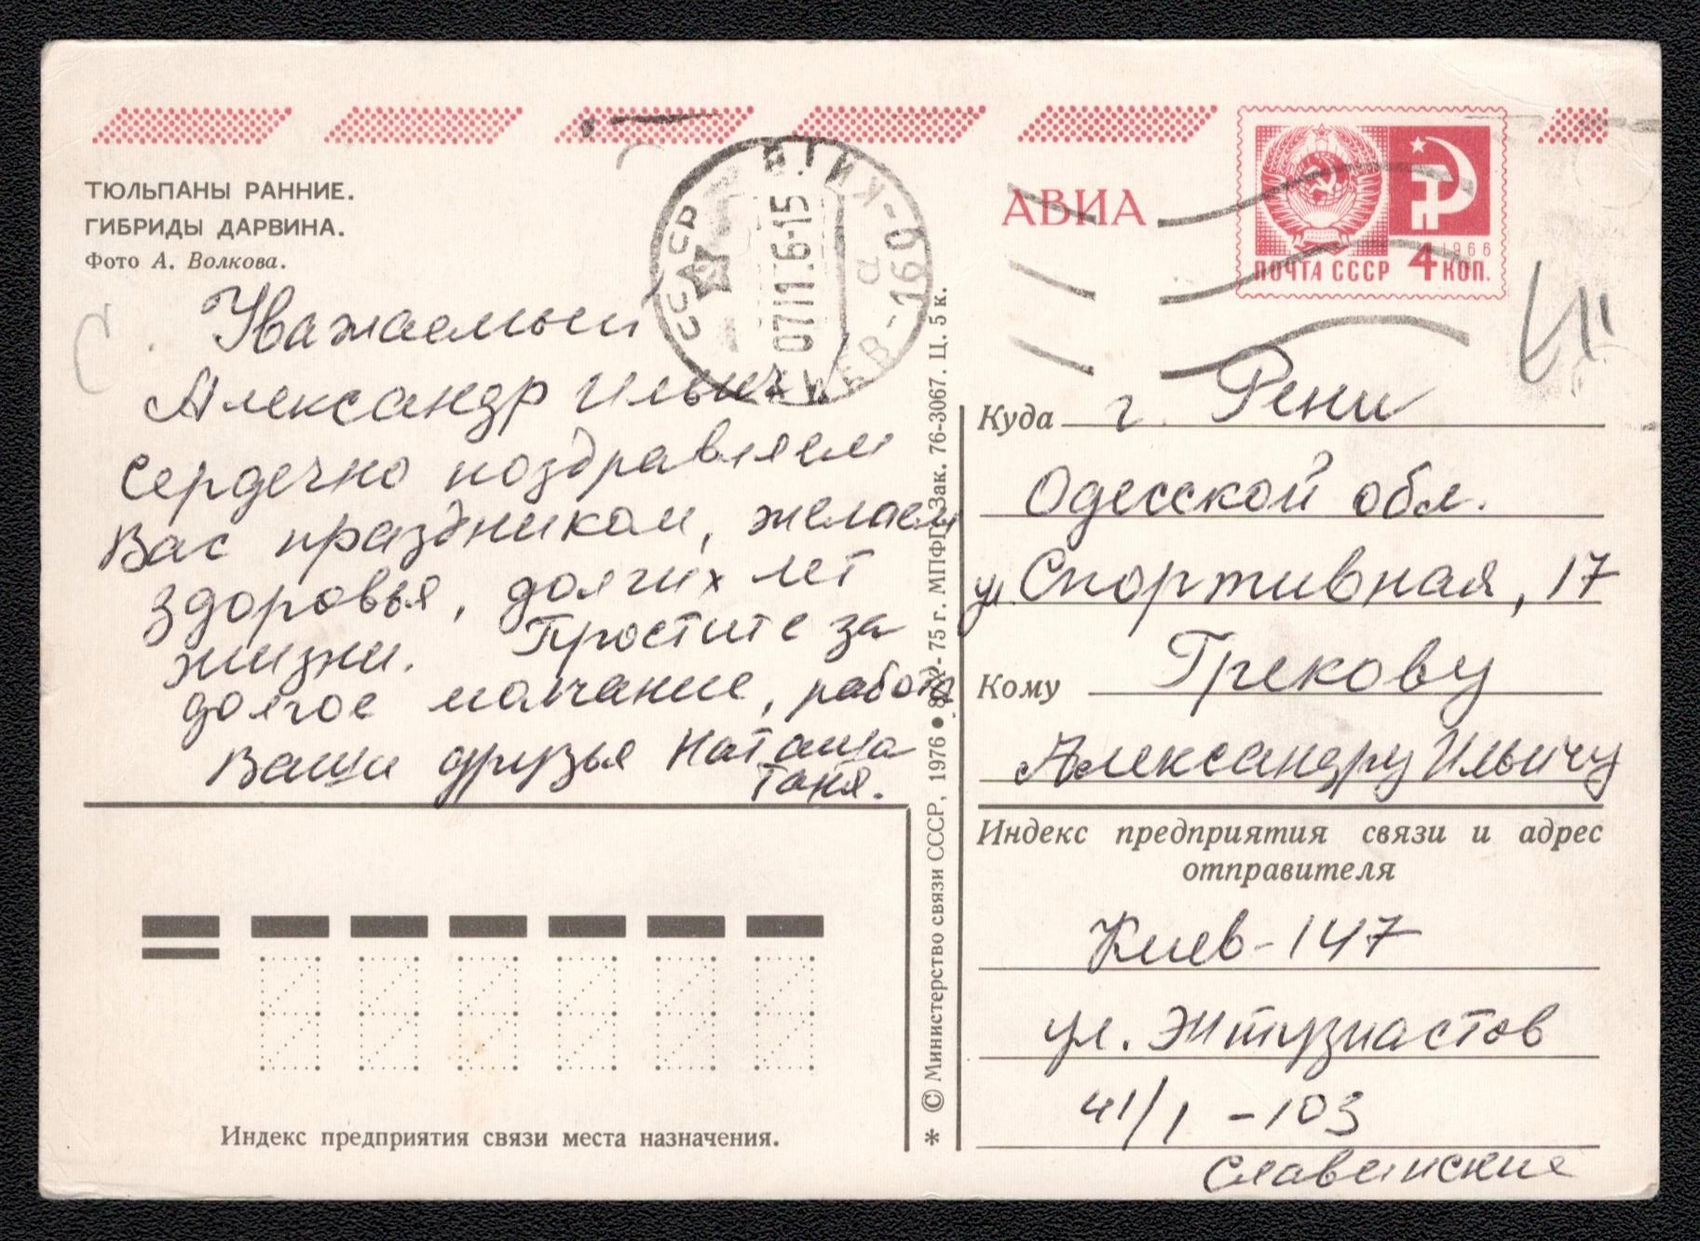 ТЮЛЬПАНЫ РАННИЕ.
ГИБРИДЫ ДАРВИНА.
Фото А. Волкова.
Уважаемый
Александр Ильич!
Сердечно поздравляем
Вас праздником, желаем
здоровья, долгих лет
жизни. Простите за
долгое молчание, работа
Ваши друзья Наташа
Таня.
Индекс предприятия связи места назначения.
СССР
071116-15
а
160
* © Министерство связи СССР, 1976 ● 75 г. МПФГ. Зак. 76-3067. Ц. 5 к.
АВИА
1966
ПОЧТА СССР 4 КОП.
Куда г. Рени
Одесской обл.
ул. Спортивная, 17
Кому Грекову
Александру Ильичу
Индекс предприятия связи и адрес
отправителя
Киев-147
ул. Энтузиастов
41/1 -103
Славинские